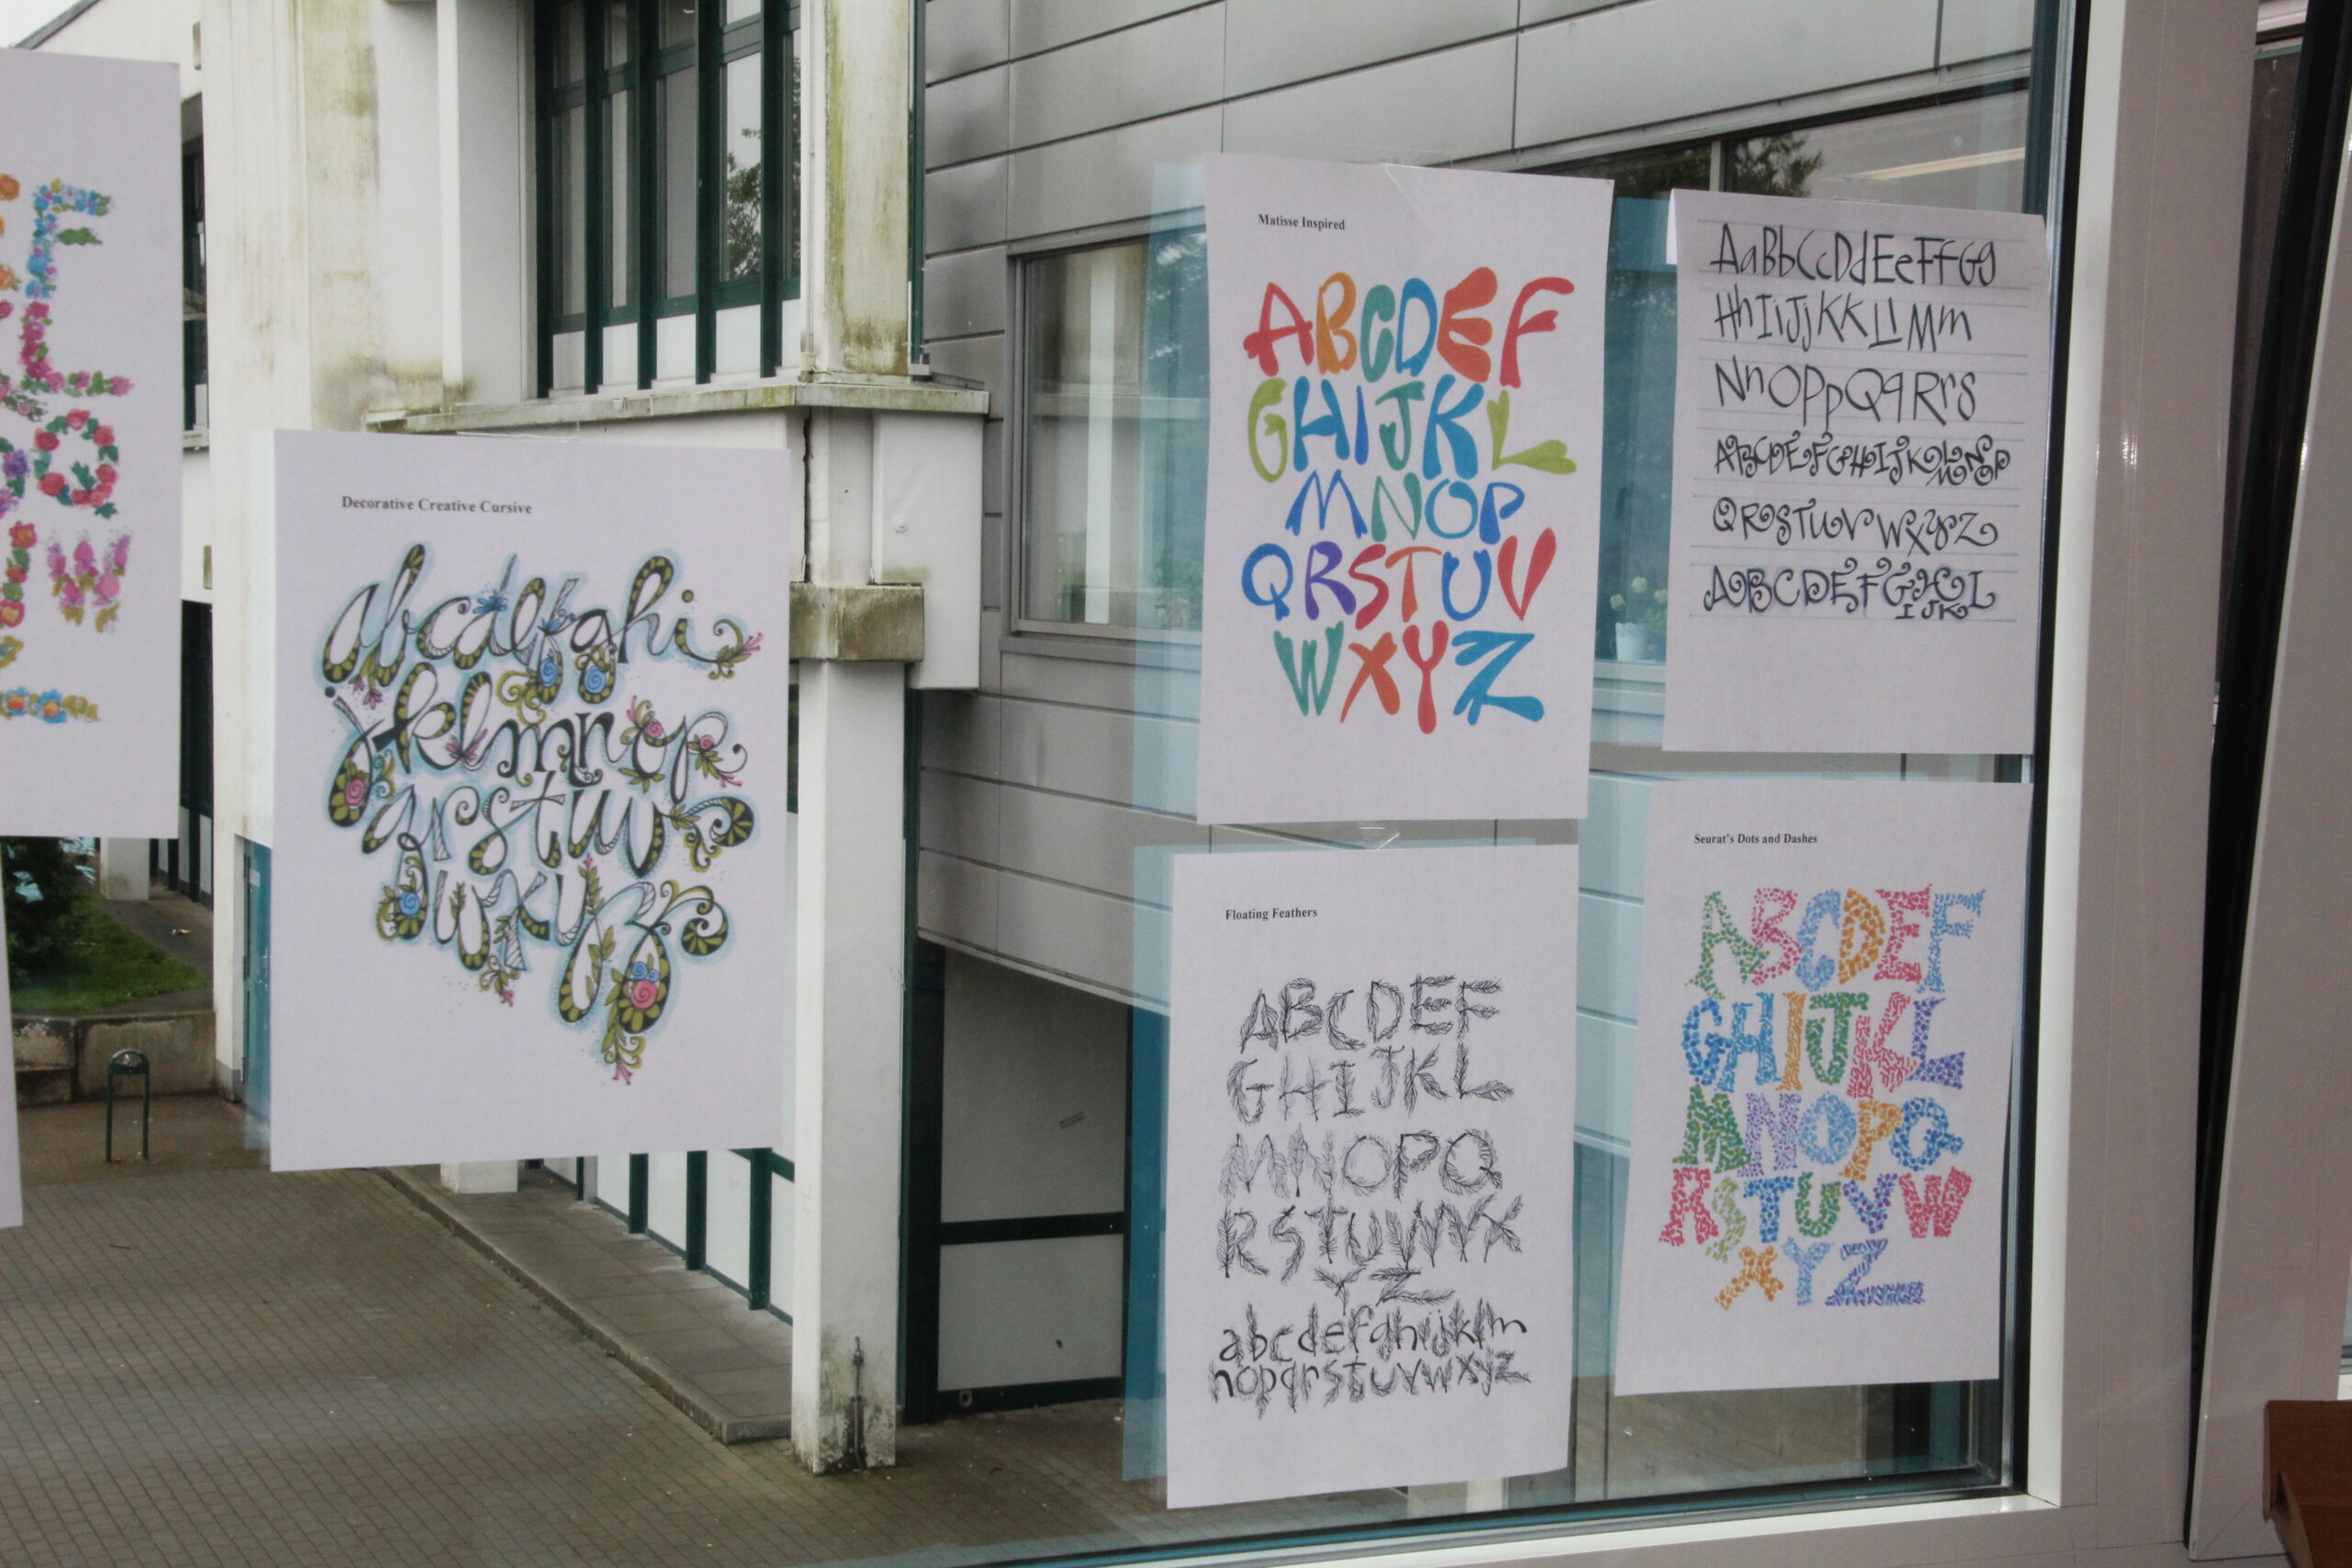 F
L
Q
W
Decorative Creative Cursive
abcdefghi
jklmnop
qrstuv
wxyz
Matisse Inspired
ABCDEF
GHIJKL
MNOP
QRSTUV
WXYZ
AaBbCcDdEeFfGg
HhIiJjKkLlMm
NnOPpQqRrS
ABCDEFGHIJKLMNOP
QRSTUVWXYZ
ABCDEFGHIJKL
Floating Feathers
ABCDEF
GHIJKL
MNOPQ
RSTUVWX
YZ
abcdefghijklm
nopqrstuvwxyz
Seurat's Dots and Dashes
ABCDEF
GHIJKL
MNOPQ
RSTUVW
XYZ